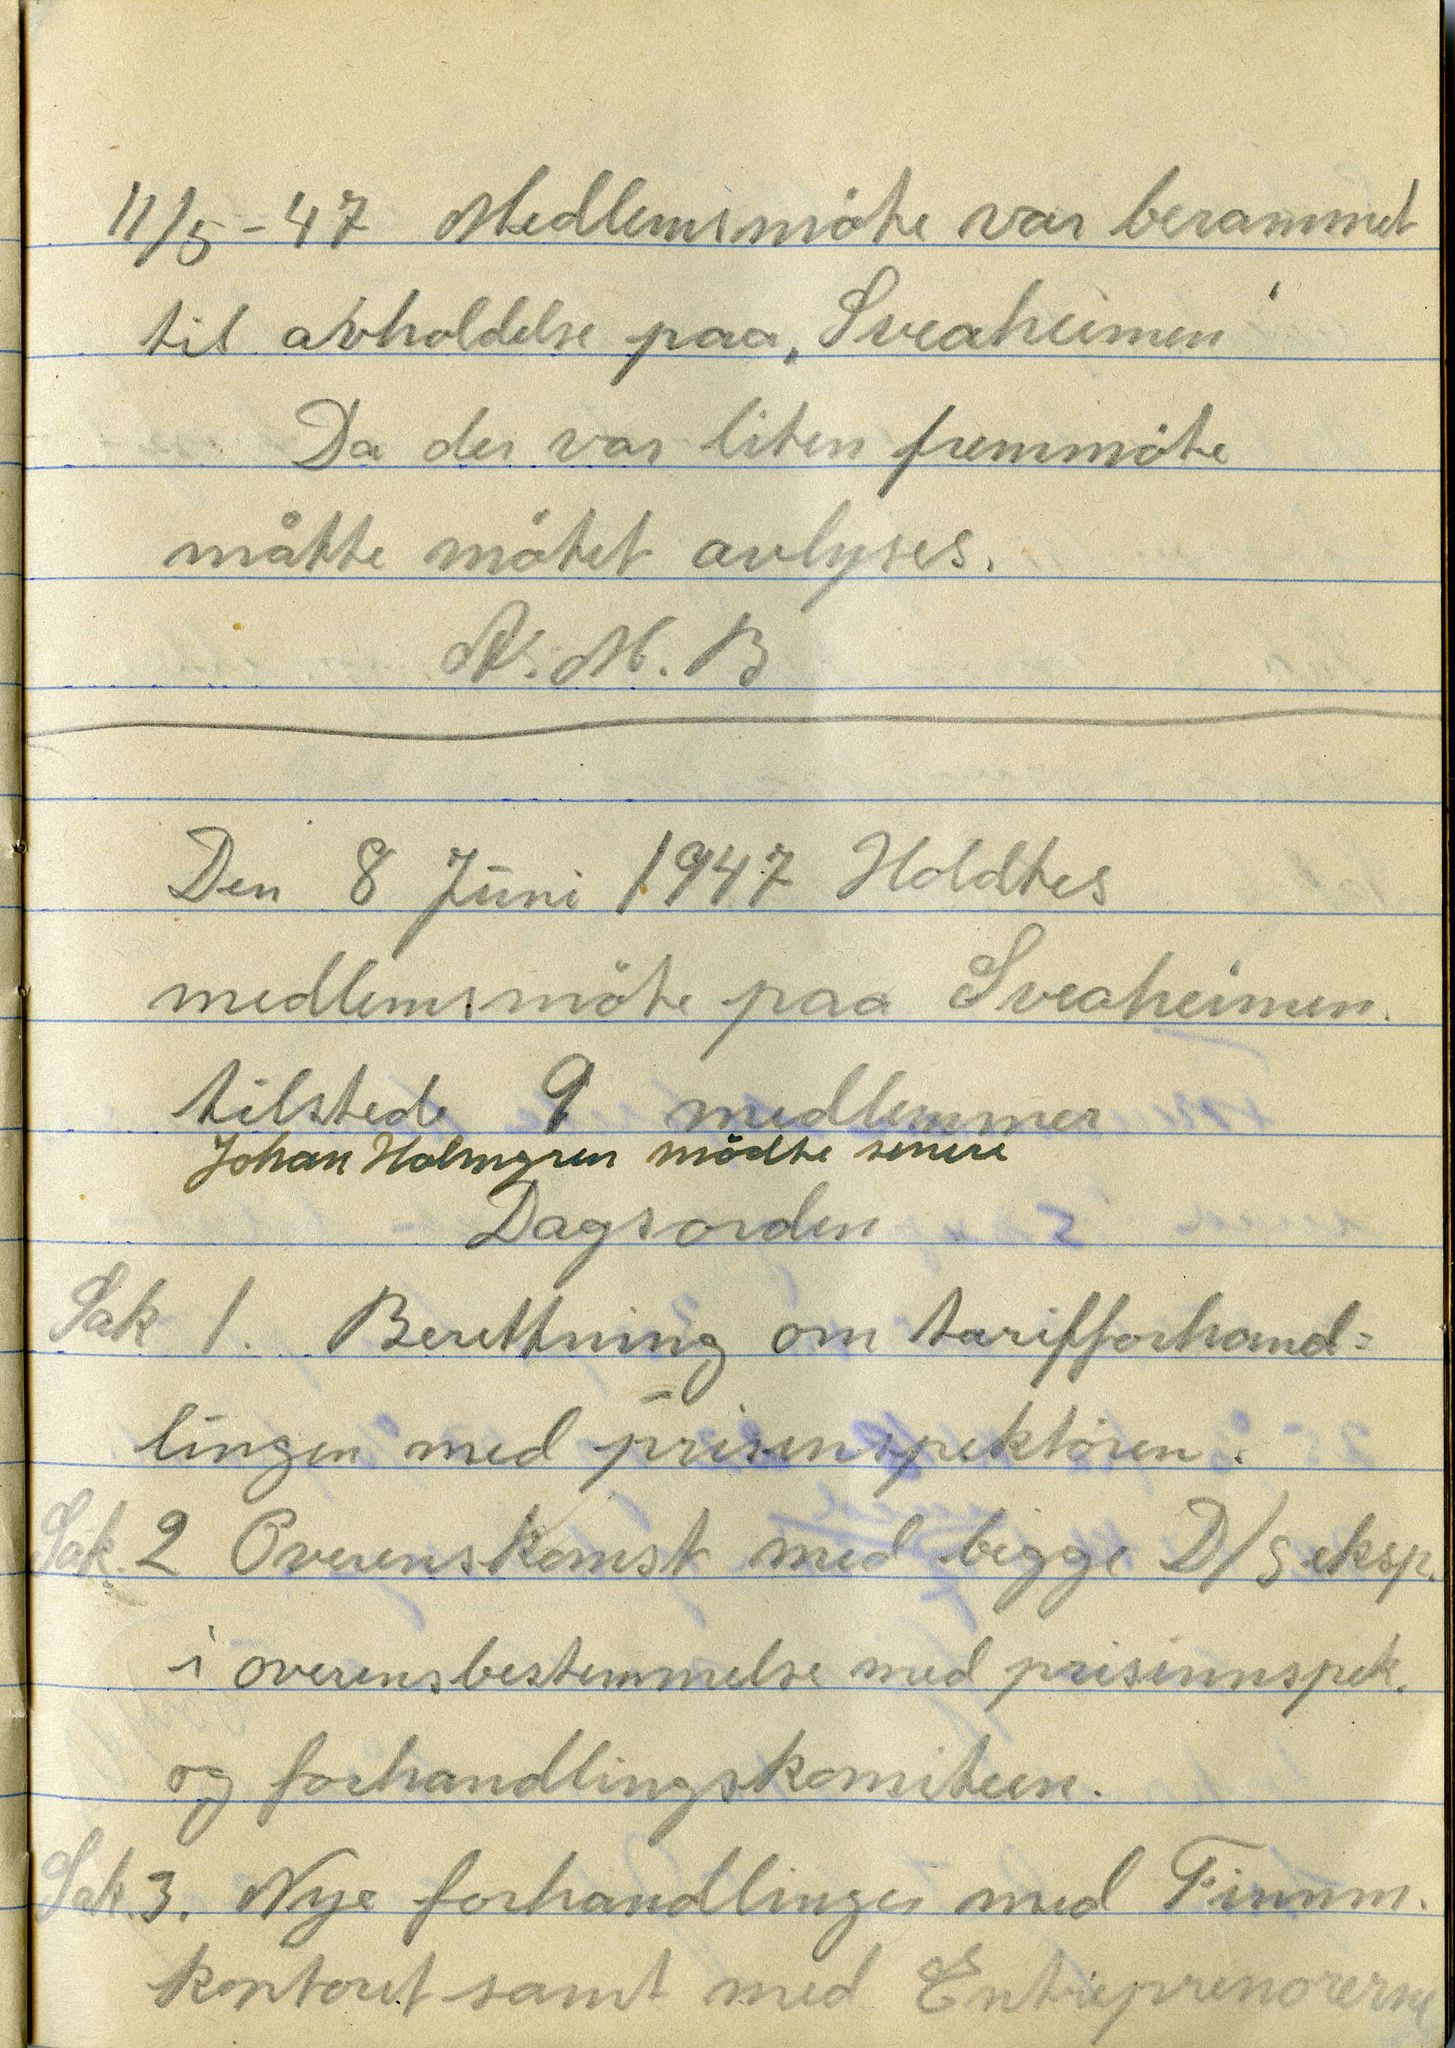 11/5-47 Medlemsmöte var berammet
til avholdelse paa „Sveaheimen"
Da der var liten fremmöte
måtte mötet avlyses.
A. M. B
Den 8 Juni 1947 Holdtes
medlemsmöte paa Sveaheimen.
tilstede 9 medlemmer
Johan Holmgren mödte senere
Dagsorden
Sak 1. Berettning om tarifforhand=
lingen med prisinspektören.
Sak. 2 Overenskomst med begge D/S eksp.
i overensbestemmelse med prisinnspek.
og forhandlingskomiteen.
Sak. 3. Nye forhandlinger med Finnm.
kontoret samt med Entreprenorerne